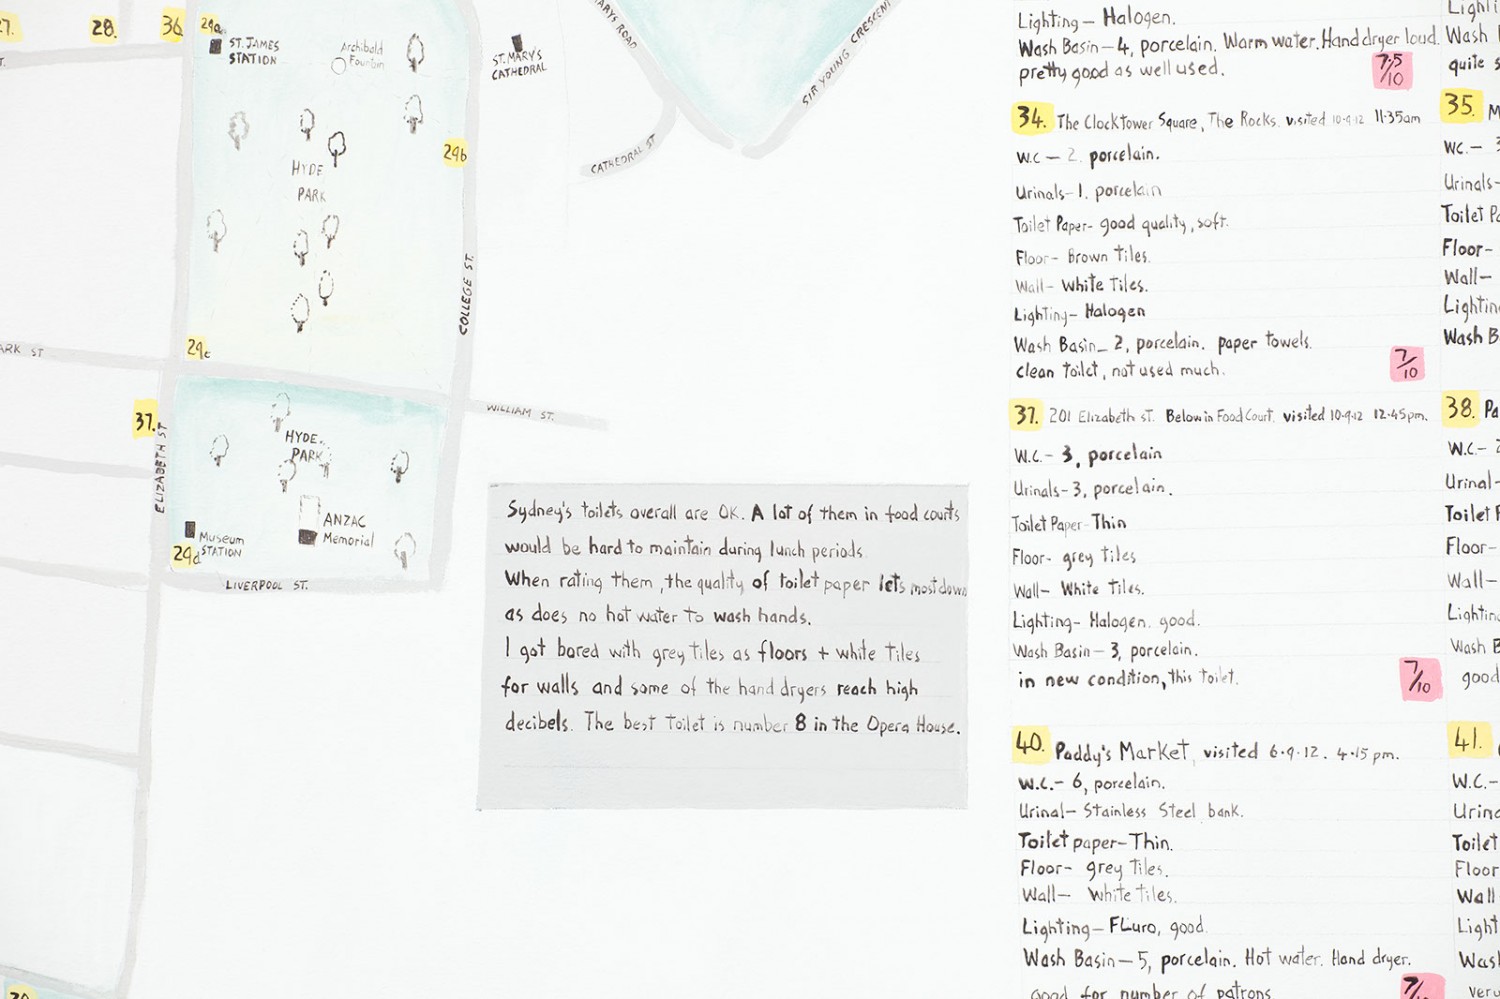 27.
28.
36
29a
ST. JAMES
STATION
Archibald
Fountain
ST. MARY'S
CATHEDRAL
MARYS ROAD
SIR YOUNG CRESCENT
CATHEDRAL ST
29b
HYDE
PARK
COLLEGE ST.
29c
ARK ST
WILLIAM ST.
37.
ELIZABETH ST
HYDE
PARK
ANZAC
Memorial
Museum
STATION
29d
LIVERPOOL ST.
Sydney's toilets overall are OK. A lot of them in food courts
would be hard to maintain during lunch periods
When rating them, the quality of toilet paper lets most down
as does no hot water to wash hands.
I got bored with grey tiles as floors + white tiles
for walls and some of the hand dryers reach high
decibels. The best toilet is number 8 in the Opera House.
Lighting- Halogen.
Wash Basin-4, porcelain. Warm water. Hand dryer loud.
pretty good as well used.
7.5/10
34. The Clocktower Square, The Rocks. visited 10.9.12 11.35am
W.C - 2. porcelain.
Urinals-1. porcelain
Toilet Paper- good quality, soft.
Floor- Brown tiles.
Wall- White Tiles.
Lighting- Halogen
Wash Basin- 2, porcelain. paper towels.
clean toilet, not used much.
7/10
37. 201 Elizabeth ST. Below in Food Court. visited 10.9.12 12.45pm.
W.C.- 3, porcelain
Urinals-3, porcelain.
Toilet Paper-Thin
Floor- grey tiles
Wall- White Tiles.
Lighting- Halogen. good.
Wash Basin-3, porcelain.
in new condition, this toilet.
7/10
40. Paddy's Market, visited 6.9.12. 4.15pm.
W.C.- 6, porcelain.
Urinal- Stainless Steel bank.
Toilet paper-Thin.
Floor- grey Tiles.
Wall- White tiles.
Lighting- FLuro, good.
Wash Basin-5, porcelain. Hot water. Hand dryer.
good for number of patrons
Wash
quite
35.
WC.-
Urinals-
Toilet
Floor-
Wall-
Lighting
Wash
38.
W.C.-
Urinal-
Toilet
Floor-
Wall-
Lighting
Wash
good
41.
W.C.-
Toilet
Floor
Wall
Light
Wash
very